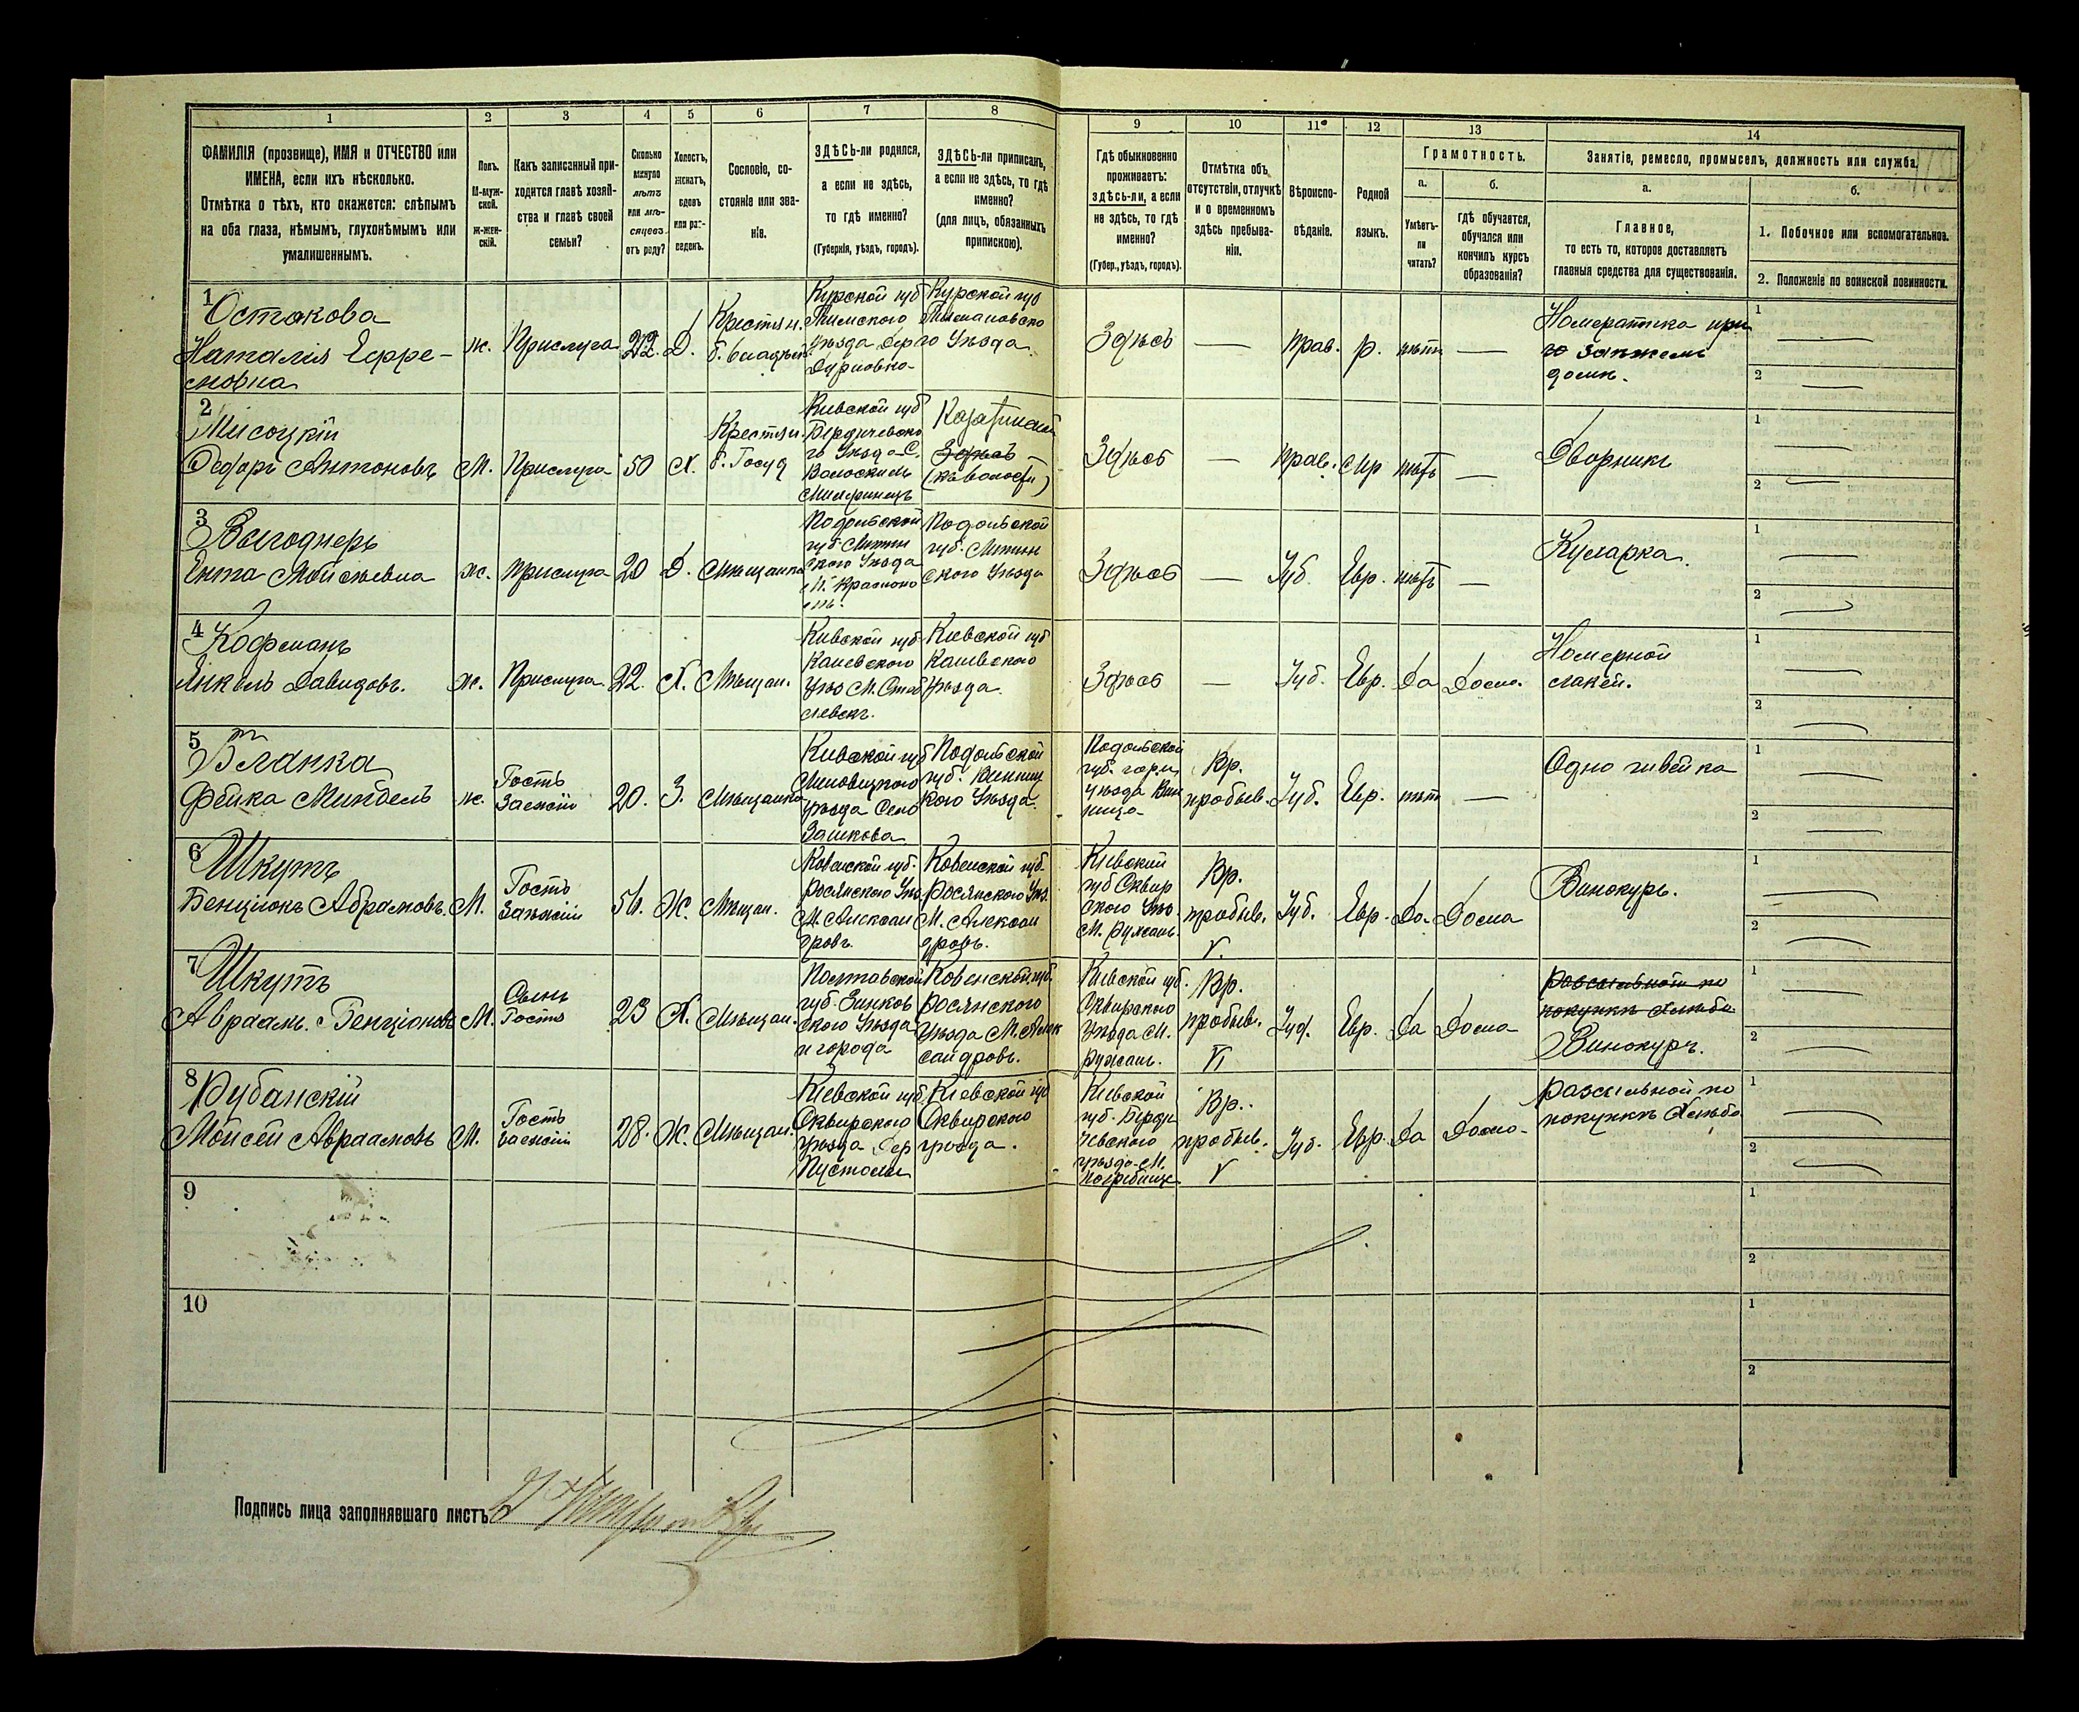 1 2 3 4 5 6 7 8 9 10 11 12 13 14
ФАМИЛІЯ (прозвище), ИМЯ и ОТЧЕСТВО или
ИМЕНА, если ихъ нѣсколько.
Отмѣтка о тѣхъ, кто окажется: слѣпымъ
на оба глаза, нѣмымъ, глухонѣмымъ или
умалишеннымъ.
Полъ.
М-муж-
ской.
Ж-жен-
скій.
Какъ записанный при-
ходится главѣ хозяй-
ства и главѣ своей
семьи?
Сколько
минуло
лѣтъ
или мѣ-
сяцевъ
отъ роду?
Холостъ,
женатъ,
вдовъ
или раз-
веденъ.
Сословіе, со-
стояніе или зва-
ніе.
ЗДѢСЬ-ли родился,
а если не здѣсь,
то гдѣ именно?
(Губернія, уѣздъ, городъ).
ЗДѢСЬ-ли приписанъ,
а если не здѣсь, то гдѣ
именно?
(для лицъ, обязанныхъ
припискою).
Гдѣ обыкновенно
проживаетъ:
здѣсь-ли, а если
не здѣсь, то гдѣ
именно?
(Губер., уѣздъ, городъ).
Отмѣтка объ
отсутствіи, отлучкѣ
и о временномъ
здѣсь пребыва-
ніи.
Вѣроиспо-
вѣданіе.
Родной
языкъ.
Грамотность.
а.
Умѣетъ-
ли
читать?
б.
гдѣ обучается,
обучался или
кончилъ курсъ
образованія?
Занятіе, ремесло, промыселъ, должность или служба.
а.
Главное,
то есть то, которое доставляетъ
главныя средства для существованія.
б.
1. Побочное или вспомогательное.
2. Положеніе по воинской повинности.
1
Остакова
Наталія Ефре-
мовна
ж.
Прислуга
22
Д.
Крестьн.
б. владѣл.
Курской губ
Тимского
Уѣзда Дер
Курской губ
Уѣзда
Здѣсь
—
прав.
р.
нѣтъ
—
домѣ.
1
2
2
Мисоцкій
Антоновъ
М.
Прислуга
50
Х.
Крестьн.
б. Госуд
Кіевской губ
Бердичевска
го Уѣзда С.
Казатинской
Здѣсь
(волости)
Здѣсь
—
прав.
нѣтъ
—
Дворникъ
1
2
3
Выгоднеръ
Ента Мойсѣевна
ж.
прислуга
20
Д.
Мѣщанка
Подольской
губ. Литин
ского Уѣзда
М. Красноко
Подольской
губ. Литин
ского Уѣзда
Здѣсь
—
Іуд.
Евр.
нѣтъ
—
Кухарка.
1
2
4
Кофманъ
Янкель Давидовъ.
ж.
Прислуга
22.
Х.
Мѣщан.
Кіевской губ
Каневского
Кіевской губ
Каневского
Уѣзда.
Здѣсь
—
Іуд.
Евр.
Да
Дома.
Номерной
лакей.
1
2
5
Бланка
Фейка Миндель
ж.
Гость
Заежій
20.
З.
Мѣщанка
Кіевской губ
Липовецкого
уѣзда Село
Зашкова
Подольской
губ. Винниц
кого Уѣзда.
Подольской
губ. горд
Уѣзда Вин
ница
Вр.
пробыв.
Іуд.
Евр.
нѣтъ
—
Одно швейка
1
2
6
Шкутъ
Бенціонъ Абрамовъ.
М.
Гость
Заежій
56.
Ж.
Мѣщан.
Ковенской губ.
Росіянского Уѣз
М. Алексан
дровъ.
Ковенской губ.
Росіянского Уѣз.
М. Алексан
дровъ.
Кіевский
губ Сквир
ского Уѣз
М. Ружанъ.
Вр.
пробыв.
V.
Іуд.
Евр.
Да.
Дома
Винокуръ.
1
2
7
Шкутъ
Авраам. Бенціоновъ
М.
Сынъ
Гостя
23
Х.
Мѣщан.
Полтавской
губ. Зинков
ского Уѣзда
и города
Ковенской губ.
Росіянского
Уѣзда М. Алек
сандровъ.
Кіевской губ.
Сквирского
Уѣзда М.
Ружанъ.
Вр.
пробыв.
VI
Іуд.
Евр.
Да
Дома
разсыльной по
покупкѣ хлѣба
Винокуръ.
1
2
8
Рубанскій
Мойсей Авраамовъ
М.
Гость
заежій
28.
Ж.
Мѣщан.
Кіевской губ.
Сквирского
уѣзда Дер
Пустохи
Кіевской губ
Сквирского
уѣзда.
Кіевской
губ. Берди
чевского
уѣзда М.
Погребище
Вр.
пробыв.
V
Іуд.
Евр.
Да
Дома
разсыльной по
покупкѣ хлѣба
1
2
9
1
2
10
1
2
Подпись лица заполнявшаго листъ